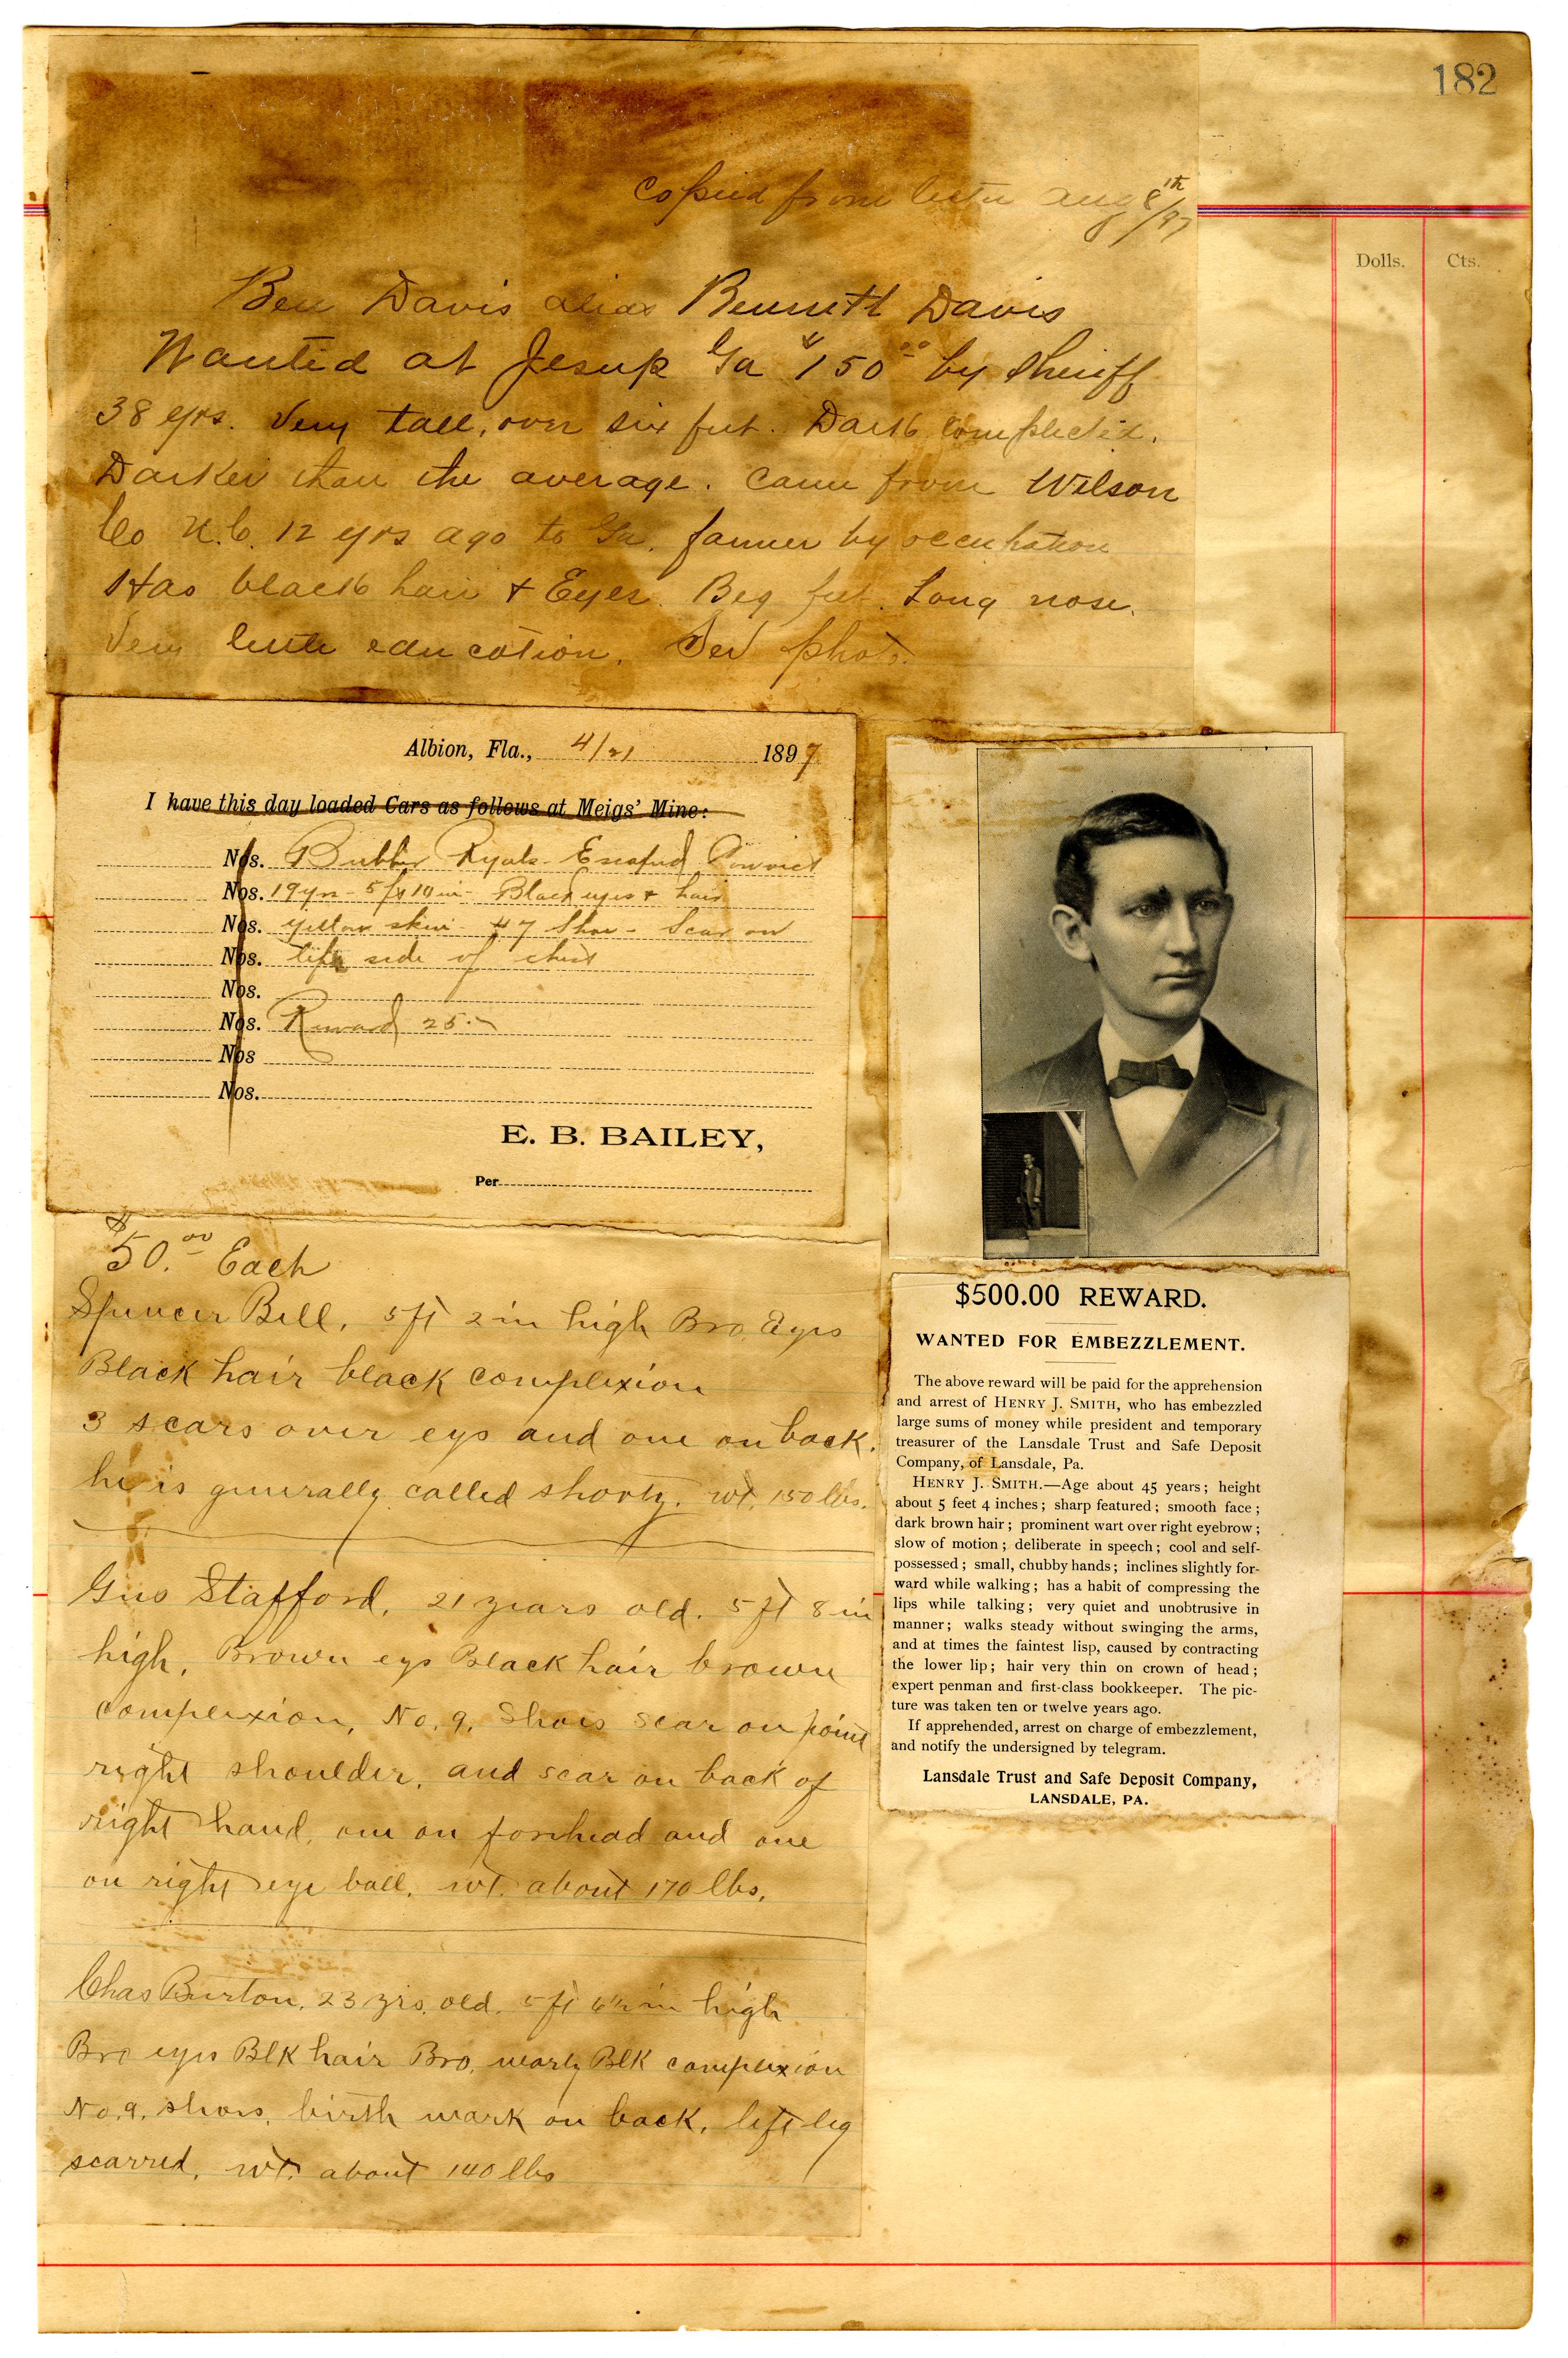 182
Dolls. Cts.
Copied from letter Aug 8th/97
Ben Davis alias Bennett Davis
Wanted at Jesup Ga $150.00 by Sheriff
38 yrs. Very tall, over six feet. Dark
Darker than the average. Came from Wilson
Co N.C. 12 yrs ago to Ga. farmer by occupation
Has black hair & Eyes. Big feet. Long nose.
Very little education. See photo.
Albion, Fla., 4/21 1897
I have this day loaded Cars as follows at Meigs' Mine:
Nos. Ryals - Escaped Convict
Nos. 19 yrs - 5 ft 10 in - Black eyes & hair
Nos. yellow skin - #7 Shoe - Scar on
Nos. left side of chest
Nos.
Nos. Reward 25.-
Nos
Nos.
E. B. BAILEY,
Per
$50.00 Each
Spencer Bell, 5 ft 2 in high Bro. Eyes
Black hair black complexion
3 scars over eys and one on back.
he is generally called shorty. wt. 150 lbs.
Gus Stafford, 21 years old. 5 ft 8 in
high, Brown eys Black hair brown
complexion, No. 9. Shoes scar on point
right shoulder, and scar on back of
right hand, one on forehead and one
on right eye ball. wt. about 170 lbs.
Chas Burton, 23 yrs. old. 5 ft 6½ in high
Bro eyes Blk hair Bro. nearly Blk complexion
No. 9. shoes, birth mark on back, left leg
scarred, wt. about 140 lbs
$500.00 REWARD.
WANTED FOR EMBEZZLEMENT.
The above reward will be paid for the apprehension
and arrest of HENRY J. SMITH, who has embezzled
large sums of money while president and temporary
treasurer of the Lansdale Trust and Safe Deposit
Company, of Lansdale, Pa.
HENRY J. SMITH.—Age about 45 years; height
about 5 feet 4 inches; sharp featured; smooth face;
dark brown hair; prominent wart over right eyebrow;
slow of motion; deliberate in speech; cool and self-
possessed; small, chubby hands; inclines slightly for-
ward while walking; has a habit of compressing the
lips while talking; very quiet and unobtrusive in
manner; walks steady without swinging the arms,
and at times the faintest lisp, caused by contracting
the lower lip; hair very thin on crown of head;
expert penman and first-class bookkeeper. The pic-
ture was taken ten or twelve years ago.
If apprehended, arrest on charge of embezzlement,
and notify the undersigned by telegram.
Lansdale Trust and Safe Deposit Company,
LANSDALE, PA.